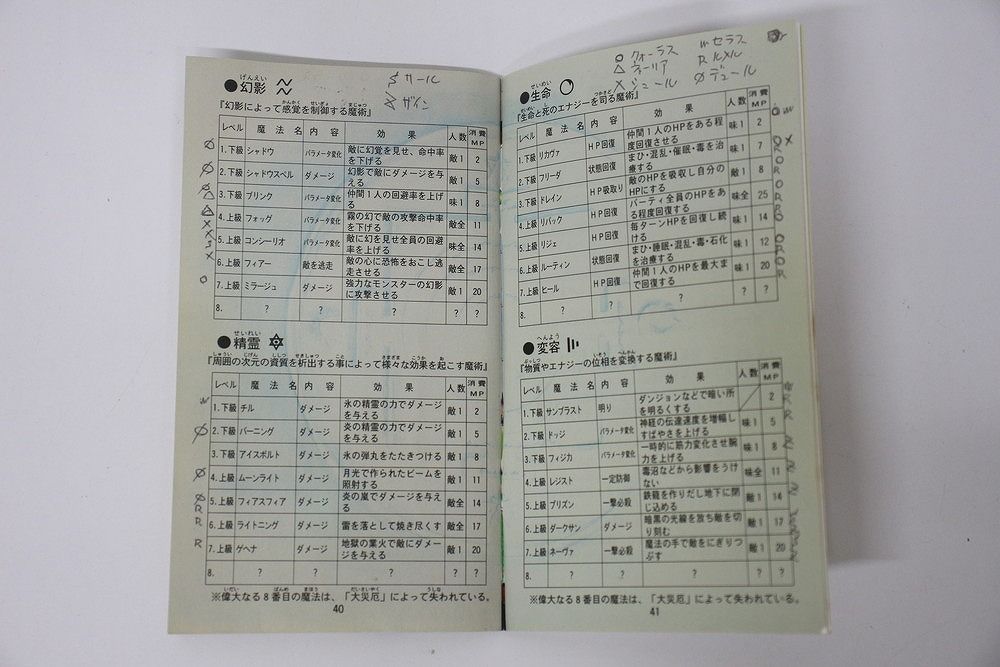 サール
ザイン
げんえい
●幻影
かんかく せいぎょ まじゅつ
『幻影によって感覚を制御する魔術』
レベル 魔法名 内容 効果 人数 消費MP
1.下級 シャドウ パラメータ変化 敵に幻覚を見せ、命中率を下げる 敵1 2
2.下級 シャドウスペル ダメージ 幻影で敵にダメージを与える 敵1 5
3.下級 ブリンク パラメータ変化 仲間1人の回避率を上げる 味1 8
4.上級 フォッグ パラメータ変化 霧の幻で敵の攻撃命中率を下げる 敵全 11
5.上級 コンシーリオ パラメータ変化 敵に幻を見せ全員の回避率を上げる 味全 14
6.上級 フィアー 敵を逃走 敵の心に恐怖をおこし逃走させる 敵全 17
7.上級 ミラージュ ダメージ 強力なモンスターの幻影に攻撃させる 敵1 20
8. ? ? ? ? ?
せいれい
●精霊
しゅうい じげん ししつ せきしゅつ こと さまざま こうか お
『周囲の次元の資質を析出する事によって様々な効果を起こす魔術』
レベル 魔法名 内容 効果 人数 消費MP
1.下級 チル ダメージ 氷の精霊の力でダメージを与える 敵1 2
2.下級 バーニング ダメージ 炎の精霊の力でダメージを与える 敵1 5
3.下級 アイスボルト ダメージ 氷の弾丸をたたきつける 敵1 8
4.上級 ムーンライト ダメージ 月光で作られたビームを照射する 敵1 11
5.上級 フィアスフィア ダメージ 炎の嵐でダメージを与える 敵全 14
6.上級 ライトニング ダメージ 雷を落として焼き尽くす 敵全 17
7.上級 ゲヘナ ダメージ 地獄の業火で敵にダメージを与える 敵1 20
8. ? ? ? ? ?
いだい ばんめ まほう だいさいやく うしな
※偉大なる8番目の魔法は、「大災厄」によって失われている。
40
○ クォーラス W セラス
△ ヴォーリア R ルメル
× ジュール Ø デュール
せいめい
●生命
つかさど
『生命と死のエナジーを司る魔術』
レベル 魔法名 内容 効果 人数 消費MP
1.下級 リカヴァ HP回復 仲間1人のHPをある程度回復させる 味1 2
2.下級 フリーダ 状態回復 まひ・混乱・催眠・毒を治療する 味1 7
3.下級 ドレイン HP吸取り 敵のHPを吸収し自分のHPにする 敵1 8
4.上級 リバック HP回復 パーティ全員のHPをある程度回復する 味全 25
5.上級 リジェ HP回復 毎ターンHPを回復し続ける 味1 14
6.上級 ルーティン 状態回復 まひ・睡眠・混乱・毒・石化を治療する 味1 12
7.上級 ヒール HP回復 仲間1人のHPを最大まで回復する 味1 20
8. ? ? ? ? ?
へんよう
●変容
ぶっしつ いそう へんかん
『物質やエナジーの位相を変換する魔術』
レベル 魔法名 内容 効果 人数 消費MP
1.下級 サンブラスト 明り ダンジョンなどで暗い所を明るくする 2
2.下級 ドッジ パラメータ変化 神経の伝達速度を増幅しすばやさを上げる 味1 5
3.下級 フィジカ パラメータ変化 一時的に筋力変化させ腕力を上げる 味1 8
4.上級 レジスト 一定防御 毒沼などから影響をうけない 味全 11
5.上級 プリズン 一撃必殺 鉄籠を作りだし地下に閉じ込める 敵1 14
6.上級 ダークサン ダメージ 暗黒の光線を放ち敵を切り刻む 敵1 17
7.上級 ネーヴァ 一撃必殺 魔法の手で敵をにぎりつぶす 敵1 20
8. ? ? ? ? ?
※偉大なる8番目の魔法は、「大災厄」によって失われている。
41